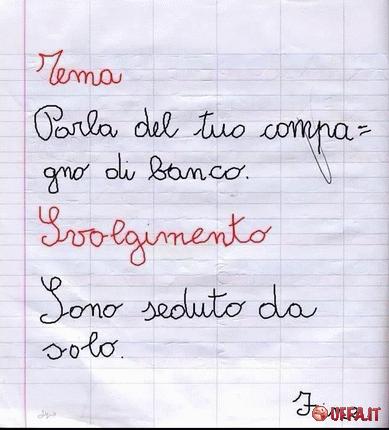 Tema
Parla del tuo compa=
gno di banco.
Svolgimento
Sono seduto da
solo.
UFFA.IT